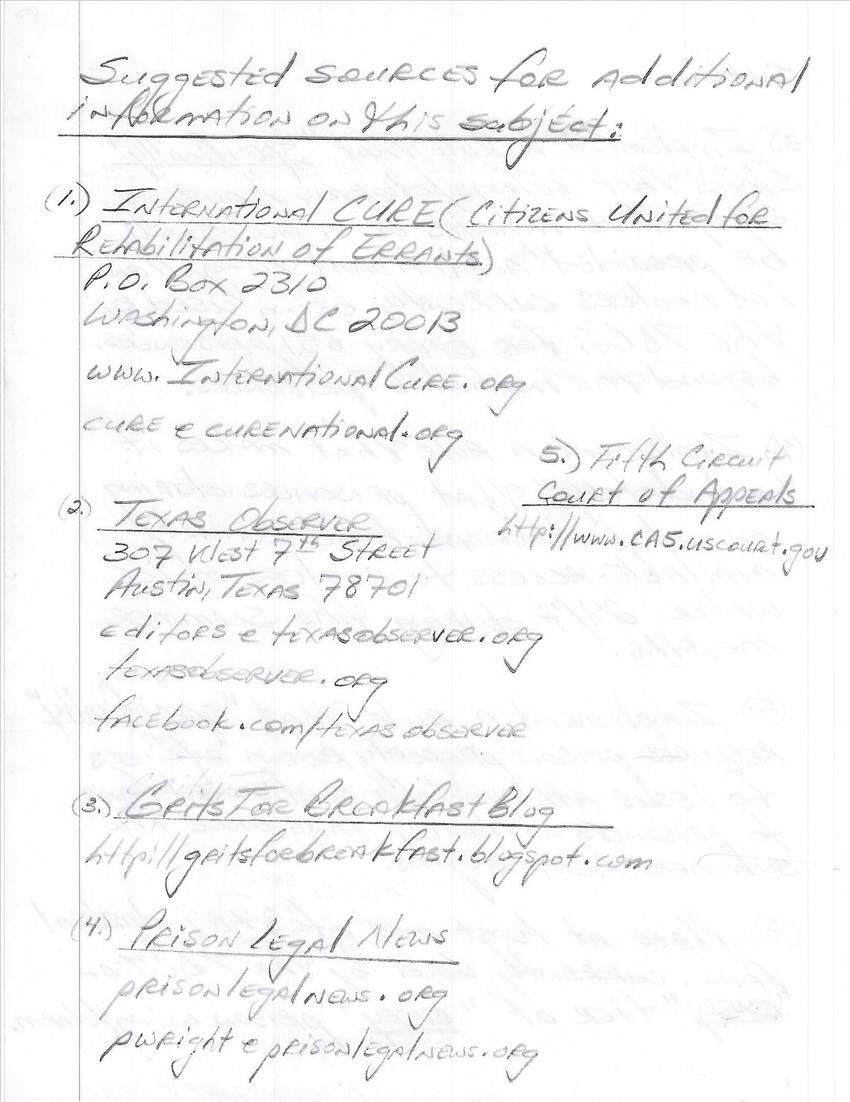 Suggested sources for additional
information on this subject:
(1.) International CURE (Citizens United for
Rehabilitation of Errants)
P.O. Box 2310
Washington, DC 20013
www.InternationalCure.org
cure e curenational.org
(2.) Texas Observer
307 West 7th Street
Austin, Texas 78701
editors e texasobserver.org
texasobserver.org
facebook.com/texasobserver
(3.) Grits For Breakfast Blog
http://gritsforbreakfast.blogspot.com
(4.) Prison Legal News
prisonlegalnews.org
pwright e prisonlegalnews.org
5.) Fifth Circuit
Court of Appeals
http://www.CA5.uscourt.gov